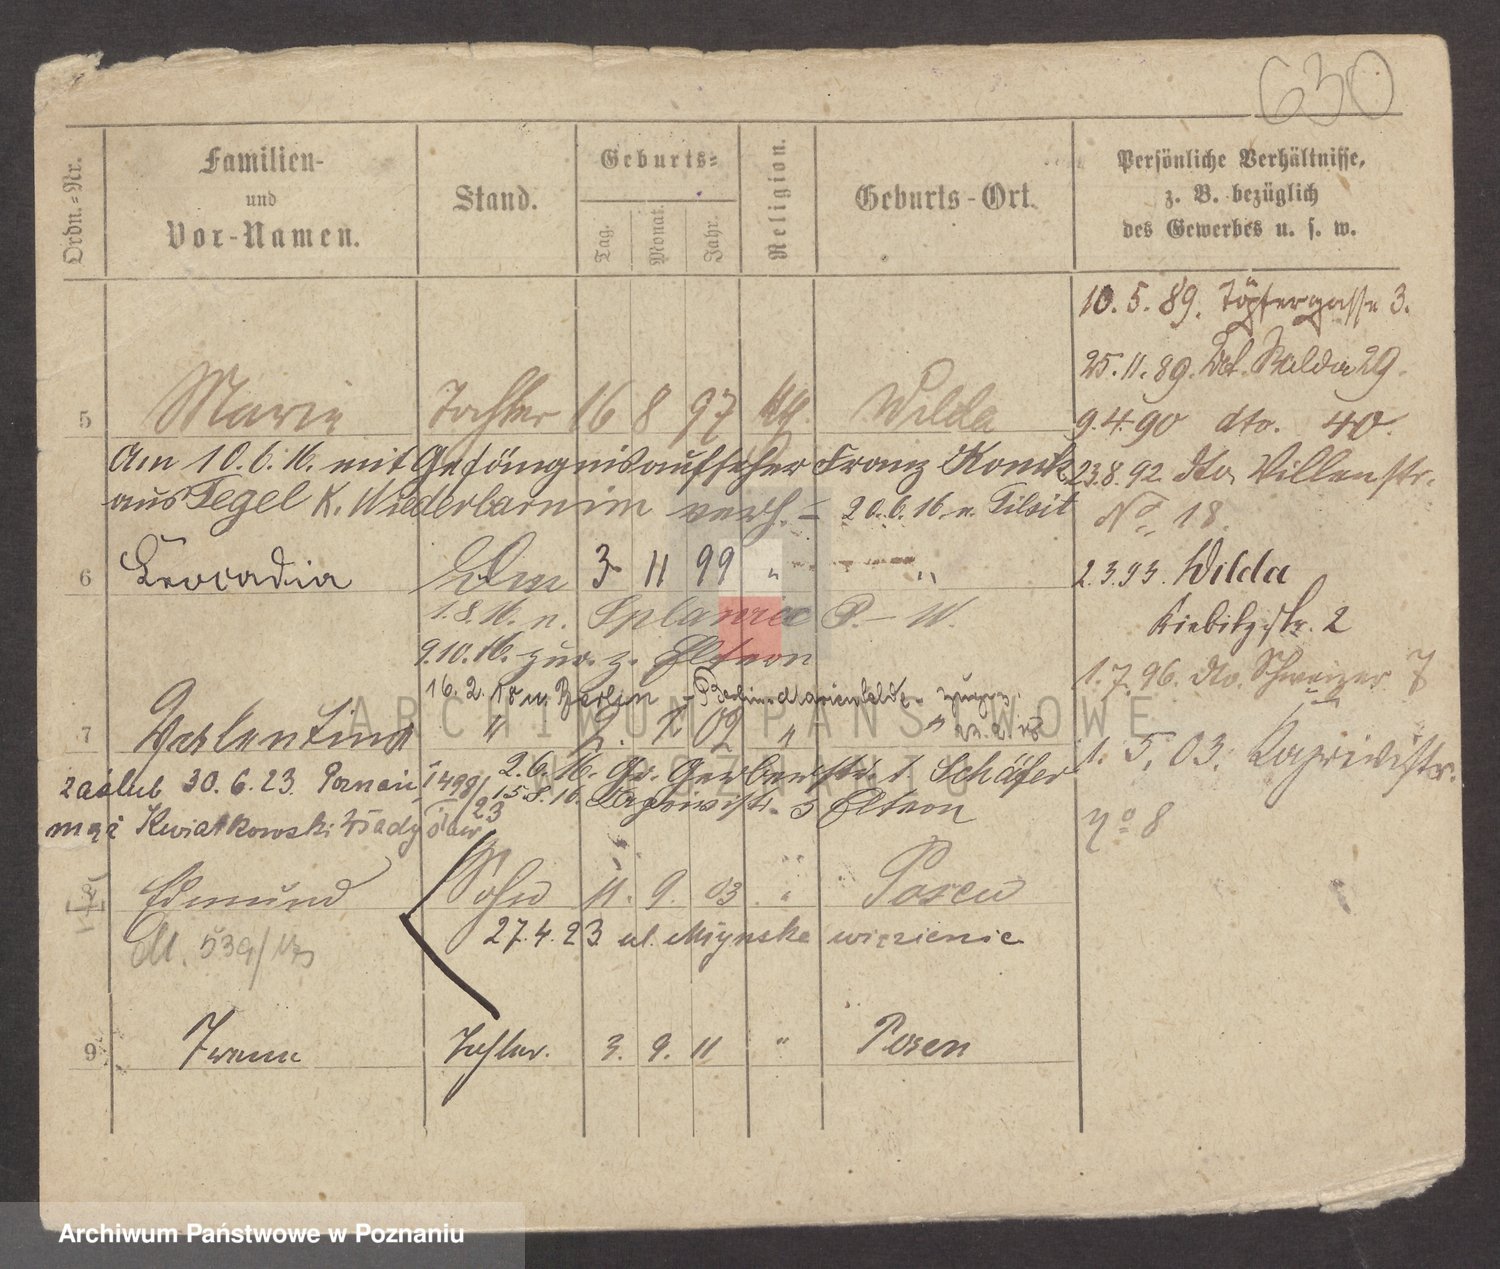 630
Ordn.-Nr.
Familien-
und
Vor-Namen.
Stand.
Geburts=
Tag.
Monat.
Jahr.
Religion.
Geburts-Ort.
Persönliche Verhältnisse,
z. B. bezüglich
des Gewerbes u. s. w.
10. 5. 89. Töpfergasse 3.
25. 11. 89. Wilda 29.
5 Marie Tochter 16 8 97 kth. Wilda
9. 4. 90 dto. 40.
Am 10.6.16. mit Gefängnisaufseher Franz
23. 8. 92 dto. Villenstr.
aus Tegel K. Niederbarnim verh. – 20.6.16. n. Tilsit
No 18.
6 Leocadia 3 11 99 " "
2. 3. 93. Wilda
1.8.16. n. P. – W.
Kiebitzstr. 2
9.10.16. zur. z. Eltern
1. 7. 96. dto. Schweizer 7
16. 2. 18 n. Berlin – Berlin-Marienfelde
7 Valentina " 2. 02 " "
1. 5. 03. Caprivistr.
2.6.16. Gr. Gerberstr. Schäfer
zaślub 30. 6. 23. Poznań 1498/23
15.8.16. Caprivistr. Eltern
No 8
mąż Kwiatkowski
Edmund Sohn 11. 9. 03 " Posen
27. 4. 23 ul. Młyńska więzienie
M. 539/
9 Irene Tochter. 3. 9. 11 " Posen
ARCHIWUM PAŃSTWOWE
W POZNANIU
Archiwum Państwowe w Poznaniu